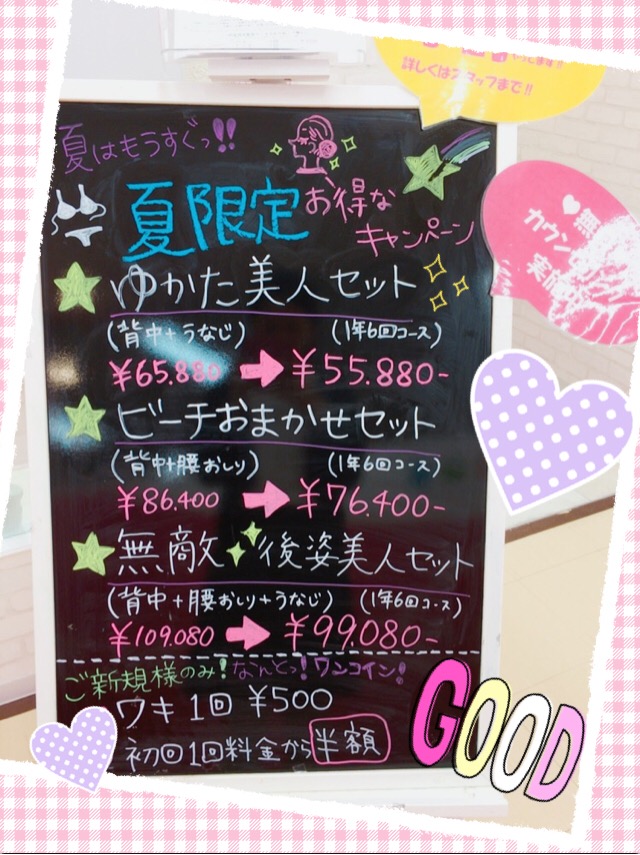 詳しくはスタッフまで!!
夏はもうすぐっ!!
夏限定お得な
キャンペーン
ゆかた美人セット
(背中+うなじ) (1年6回コース)
¥65.880 ➡ ¥55.880-
ビーチおまかせセット
(背中+腰おしり) (1年6回コース)
¥86.400 ➡ ¥76.400-
無敵後姿美人セット
(背中+腰おしり+うなじ) (1年6回コース)
¥109.080 ➡ ¥99.080-
ご新規様のみ!なんとっ!ワンコイン!
ワキ1回 ¥500
初回1回料金から半額
無
カウン
実施
GOOD